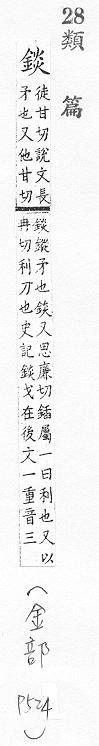 28
類篇
錟
徒甘切說文長
矛也又他甘切
錟鏦矛也錟又思廉切銛屬一曰利也又以
冉切利刃也史記錟戈在後文一重音三
(金部 P524)